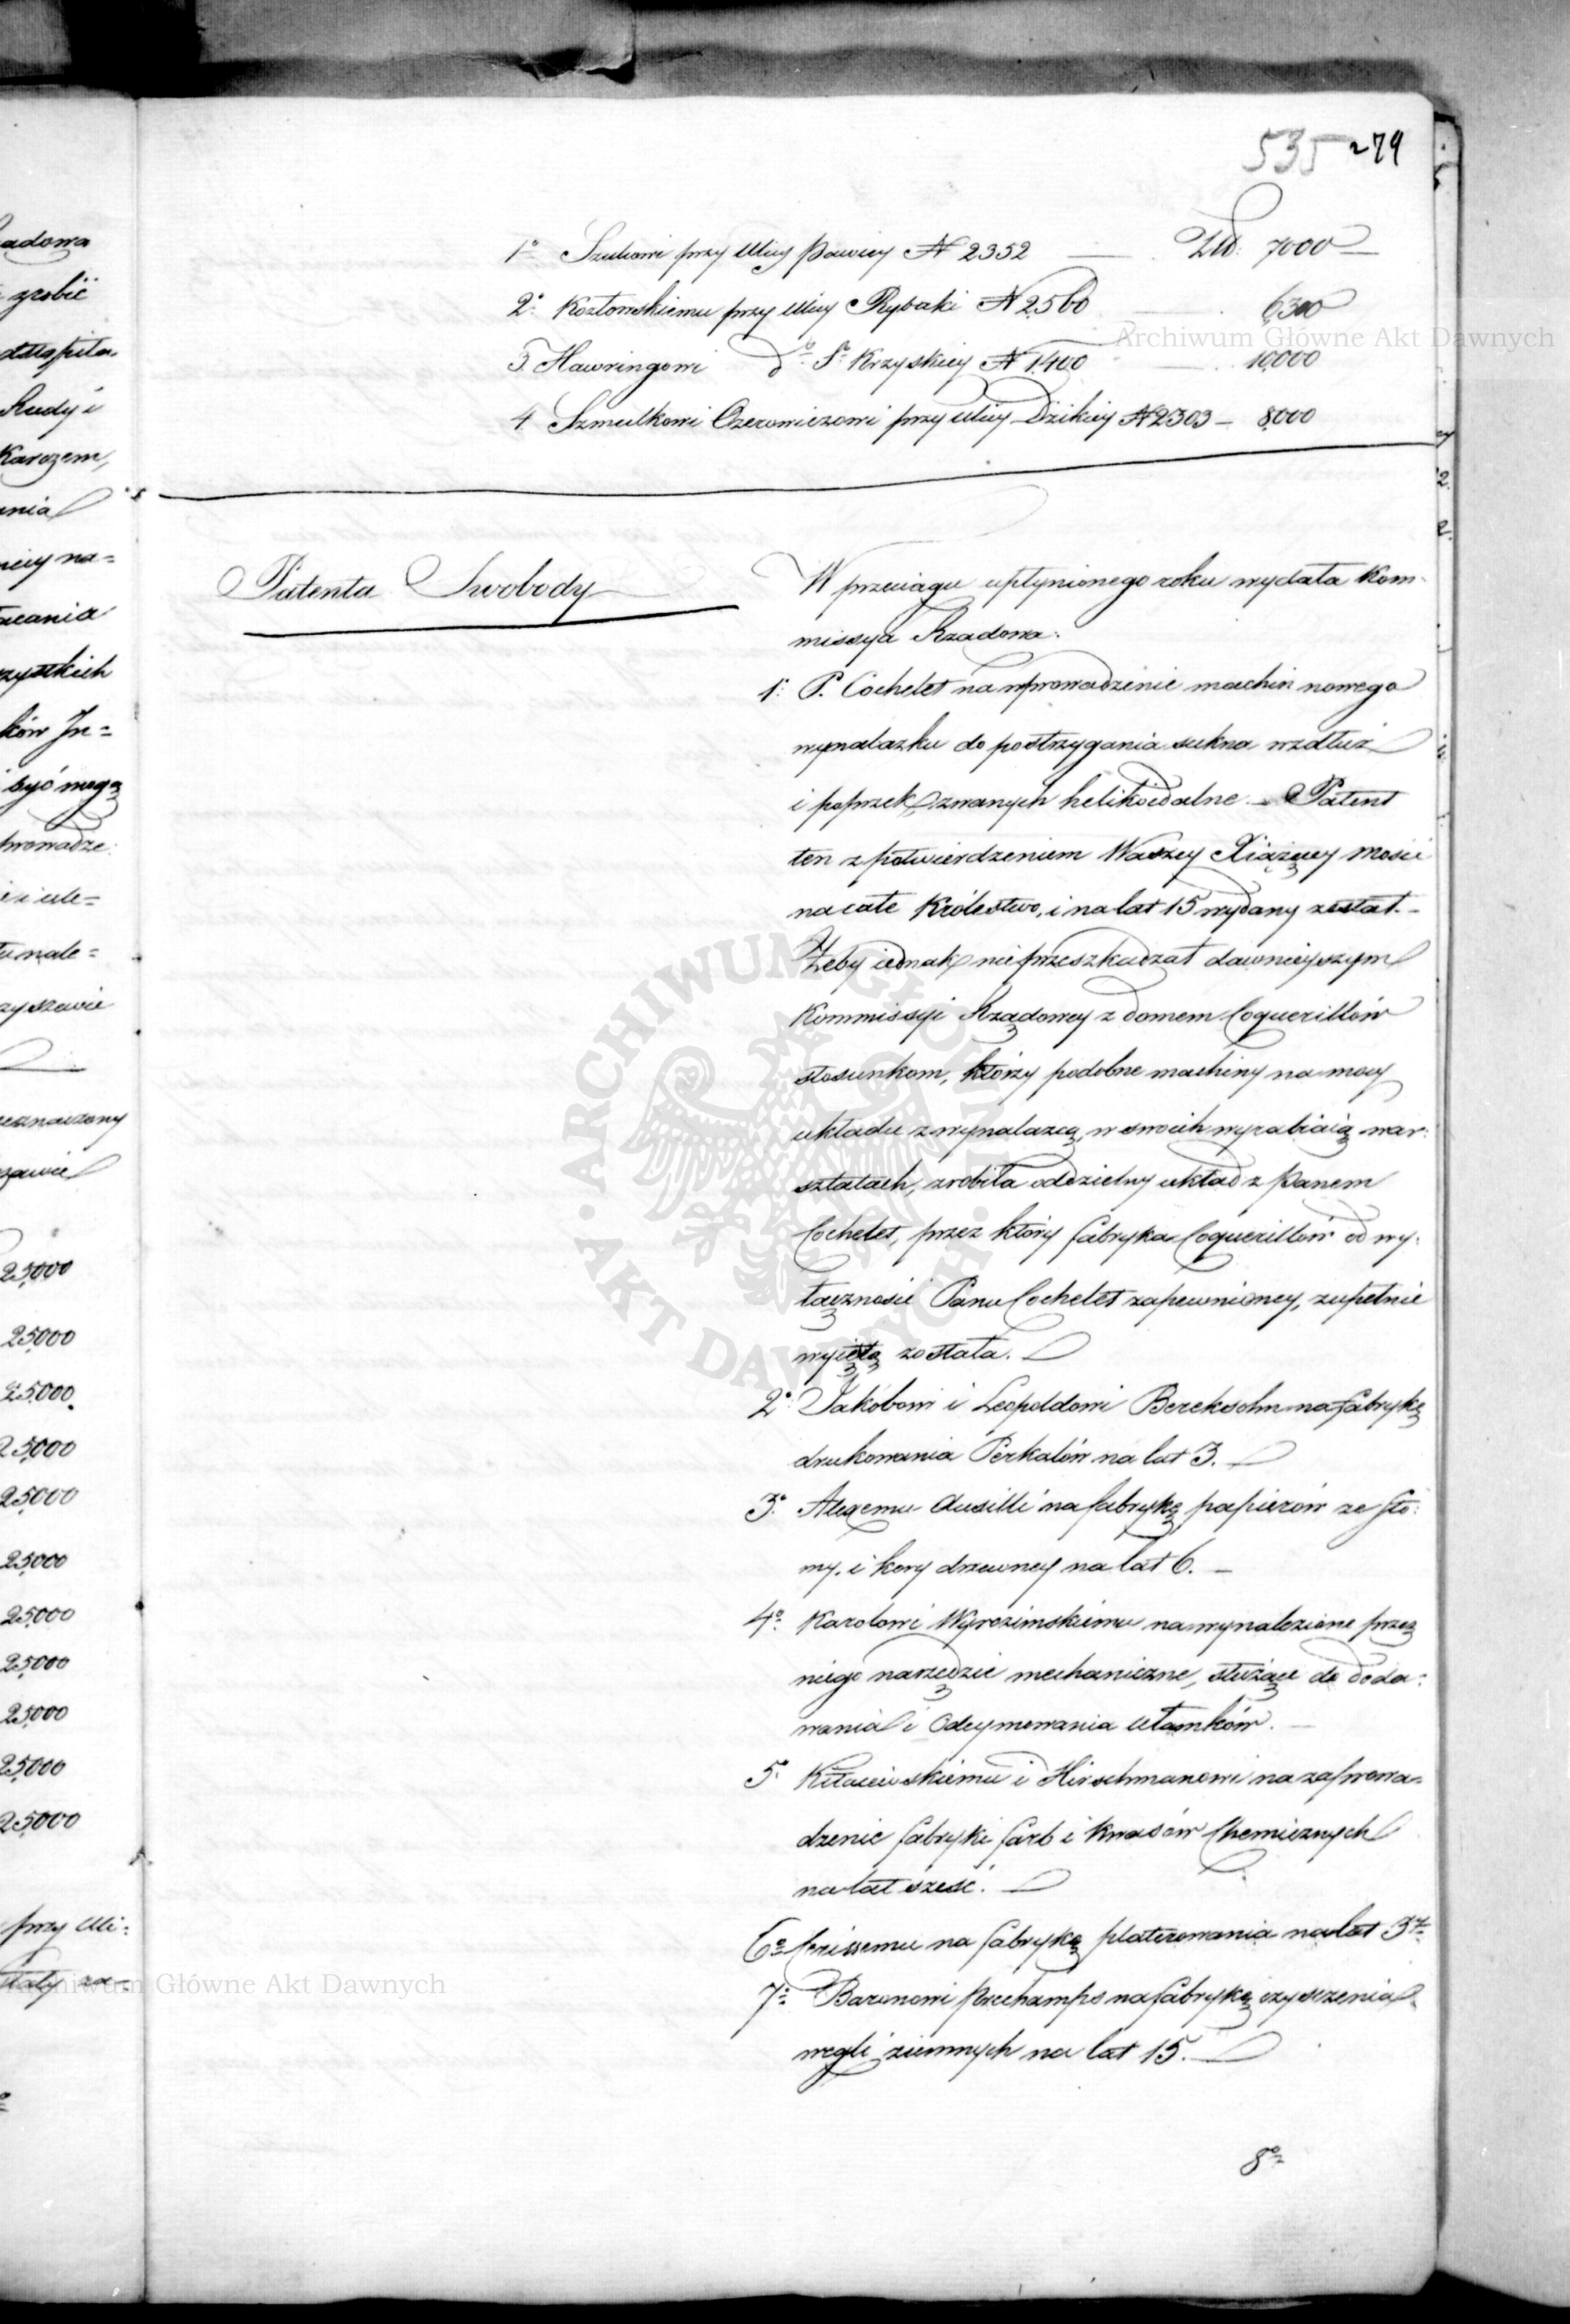 535 279
1º Szulcowi przy Ulicy Pawiey № 2352 — Zł. 7000 —
2º Kozłowskiemu przy Ulicy Rybaki № 2560 6300
3. Hawringowi dº Sº Krzyskiey № 1400 — 10,000
4 Szmulkowi Ozerowiczowi przy Ulicy Dzikiey № 2303 — 8000
Patenta Swobody
W przeciągu upłynionego roku wydała Kom-
missya Rządowa:
1º P. Cochelet na wprowadzenie machin nowego
wynalazku do postrzygania sukna wzdłuż
i poprzek, zwanych helikoidalne. — Patent
ten z potwierdzeniem Waszey Xiążęcey Mości
na całe Królestwo, i na lat 15 wydany został. —
Żeby iednak nie przeszkadzał dawnieyszym
Kommissyi Rządowey z domem Coquerillów
stosunkom, którzy podobne machiny na mocy
układu z wynalazcą, w swoich wyrabiaią war-
sztatach, zrobiła oddzielny układ z Panem
Cochelet, przez który fabryka Coquerillów od wy-
łączności Panu Cochelet zapewnioney, zupełnie
wyiętą została.
2º Jakóbowi i Leopoldowi Bereksohn na fabrykę
drukowania Perkalów na lat 3.
3º Alexemu Ausilli na fabrykę papierów ze sło-
my, i kory drzewney na lat 6. —
4º Karolowi Wyrozimskiemu na wynalezione przez
niego narzędzie mechaniczne, służące do doda-
wania i Odeymowania ułamków. —
5º i Hirschmanowi na zaprowa-
dzenie fabryki farb i kwasów Chemicznych
na lat sześć.
6º na fabrykę platerowania na lat 3
7º Baronowi na fabrykę czyszczenia
węgli ziemnych na lat 15.
8º
adowa
zrobić
Rudy i
Karczem,
nia
iey na=
cania
zystkich
ków In=
być mogą
prowadze:
ule=
male=
zyszewie
eznaczony
25,000
25,000
25,000
25,000
25,000
25,000
25,000
25,000
25,000
25,000
25,000
przy Uli=
stały za=
Archiwum Główne Akt Dawnych
ARCHIWUM GŁÓWNE AKT DAWNYCH
Archiwum Główne Akt Dawnych